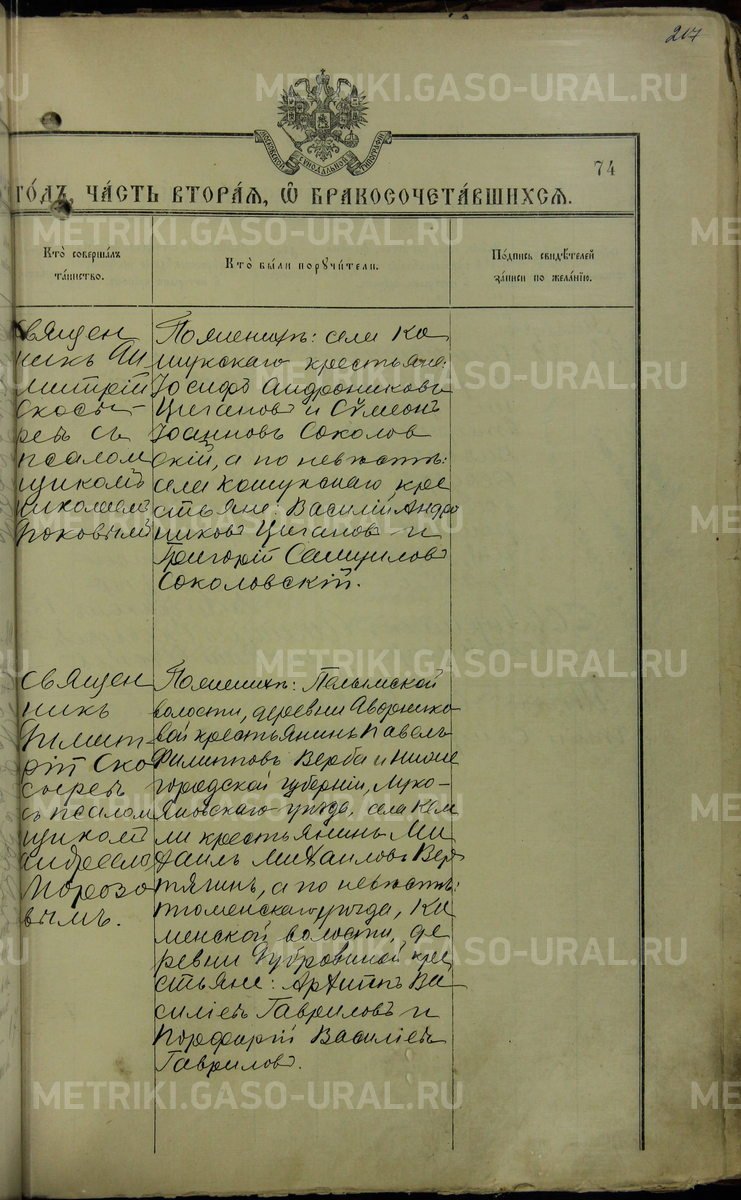 217
МОСКОВСКОЙ СУНОДАЛЬНОЙ ТИПОГРАФІИ
74
ГО́ДЪ, ЧА́СТЬ ВТОРА́Я, Ѡ҆ БРАКОСОЧЕТА́ВШИХСЯ.
Кто̀ соверша́лъ
та́инство.
Кто̀ бы́ли порꙋчи́тели.
По́дпись свидѣ́телей
за́писи по жела́нїю.
Священ
никъ Ди
митрій
Скосы-
ревъ съ
псалом
щикомъ
Николаемъ
Поповымъ
По женихѣ: села Ко
шукскаго крестьяне:
Іосифъ Андрониковъ
Цыгановъ и Сѵмеонъ
Іоанновъ Соколов
скій, а по невѣстѣ:
села Кошукскаго кре
стьяне: Василій Андро
никовъ Цыгановъ и
Григорій Самуиловъ
Соколовскій.
Священ
никъ
Димит-
рій Ско
сыревъ
съ псалом
щикомъ
Андреемъ
Морозо
вымъ.
По женихѣ: Пелымской
волости, деревни
вой крестьянинъ Павелъ
Филипповъ Верба и Ниже
городской губерніи, Луко-
яновскаго уѣзда, села Кем
ли крестьянинъ Ми
хаилъ Михаиловъ Вер
тягинъ, а по невѣстѣ:
Тюменскаго уѣзда, Ка
менской волости, де
ревни Дубровиной кре
стьяне: Архипъ Ва
силіевъ Гавриловъ и
Порфирій Василіевъ
Гавриловъ.
METRIKI.GASO-URAL.RU